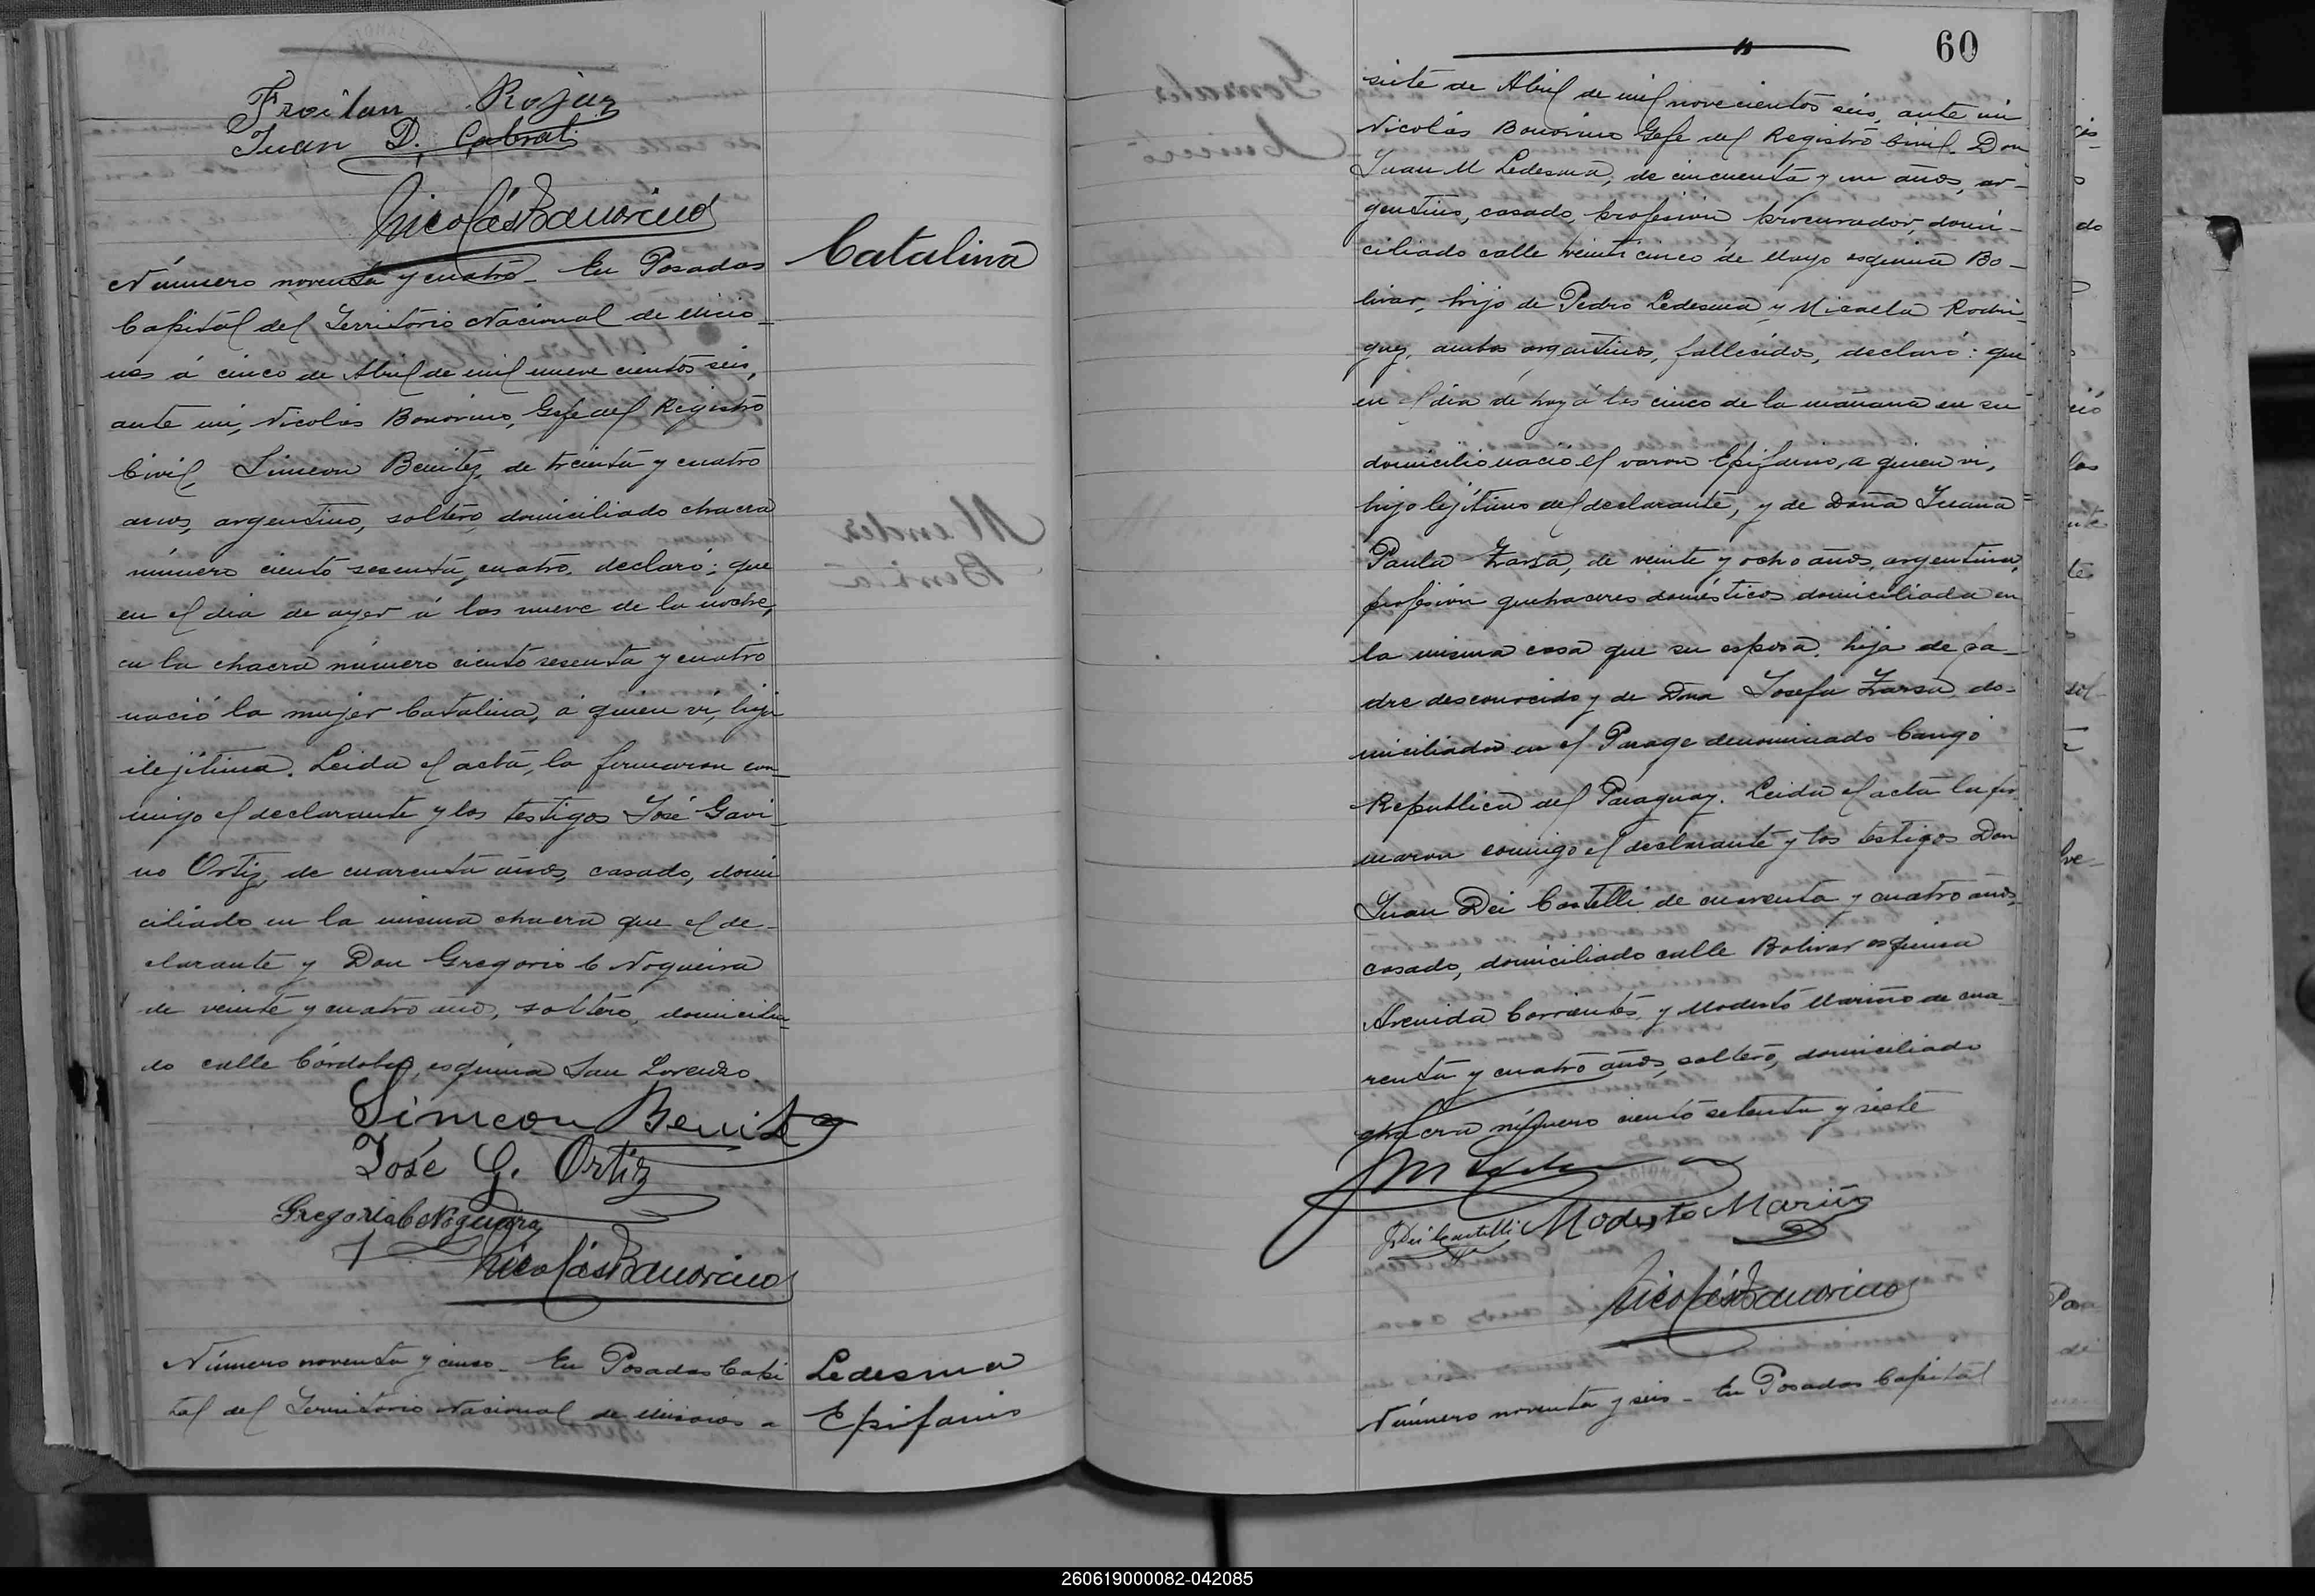 Froilan Rojas
Juan D. Cabral
Nicolás Bonorino
Catalina
Número noventa y cuatro - En Posadas
Capital del Territorio Nacional de Micio-
nes á cinco de Abril de mil nueve cientos seis,
ante mi, Nicolás Bonorino, Gefe del Registro
Civil, Simeon Benitez, de treinta y cuatro
años, argentino, soltero, domiciliado chacra
número ciento sesenta cuatro, declaró: que
en el dia de ayer á las nueve de la noche,
en la chacra número ciento sesenta y cuatro
nació la mujer Catalina, á quien vi, hija
ilejítima. Leida el acta, la firmaron con-
migo el declarante y los testigos José Gavi-
no Ortiz, de cuarenta años, casado, domi
ciliado en la misma chacra que el de-
clarante y Don Gregorio C Nogueira
de veinte y cuatro año, soltero, domicilia-
do calle Córdoba, esquina San Lorenzo.
Simeon Benitez
José G. Ortiz
Gregorio C Nogueira
Nicolás Bonorino
Número noventa y cinco - En Posadas Capi
tal del Territorio Nacional de Misiones a
Ledesma
Epifanio
60
siete de Abril de mil novecientos seis, ante mi
Nicolás Bonorino Gefe del Registro Civil, Don
Juan M Ledesma, de cincuenta y un años, ar-
gentino, casado, profesion procurador, domi-
ciliado calle veinti cinco de Mayo esquina Bo-
livar, hijo de Pedro Ledesma y Micaela Rodri-
guez, ambos argentinos, fallecidos, declaró: que
en el dia de hoy á las cinco de la mañana en su
domicilio nació el varon Epifanio, a quien vi,
hijo lejítimo del declarante, y de Doña Juana
Paula Zarza, de veinte y ocho años, argentina,
profesion quehaceres domésticos domiciliada en
la misma casa que su esposo, hija de pa-
dre desconocido y de Doña Josefa Zarza, do-
miciliada en el Parage denominado Cangó
Republica del Paraguay. Leida el acta la fir
maron conmigo el declarante y los testigos Don
Juan Dei Castelli de cuarenta y cuatro años,
casado, domiciliado calle Bolivar esquina
Avenida Corrientes, y Modesto Mariño de cua-
renta y cuatro años, soltero, domiciliado
chacra número ciento setenta y siete
J Dei Castelli Modesto Mariño
Nicolás Bonorino
Número noventa y seis - En Posadas Capital
260619000082-042085